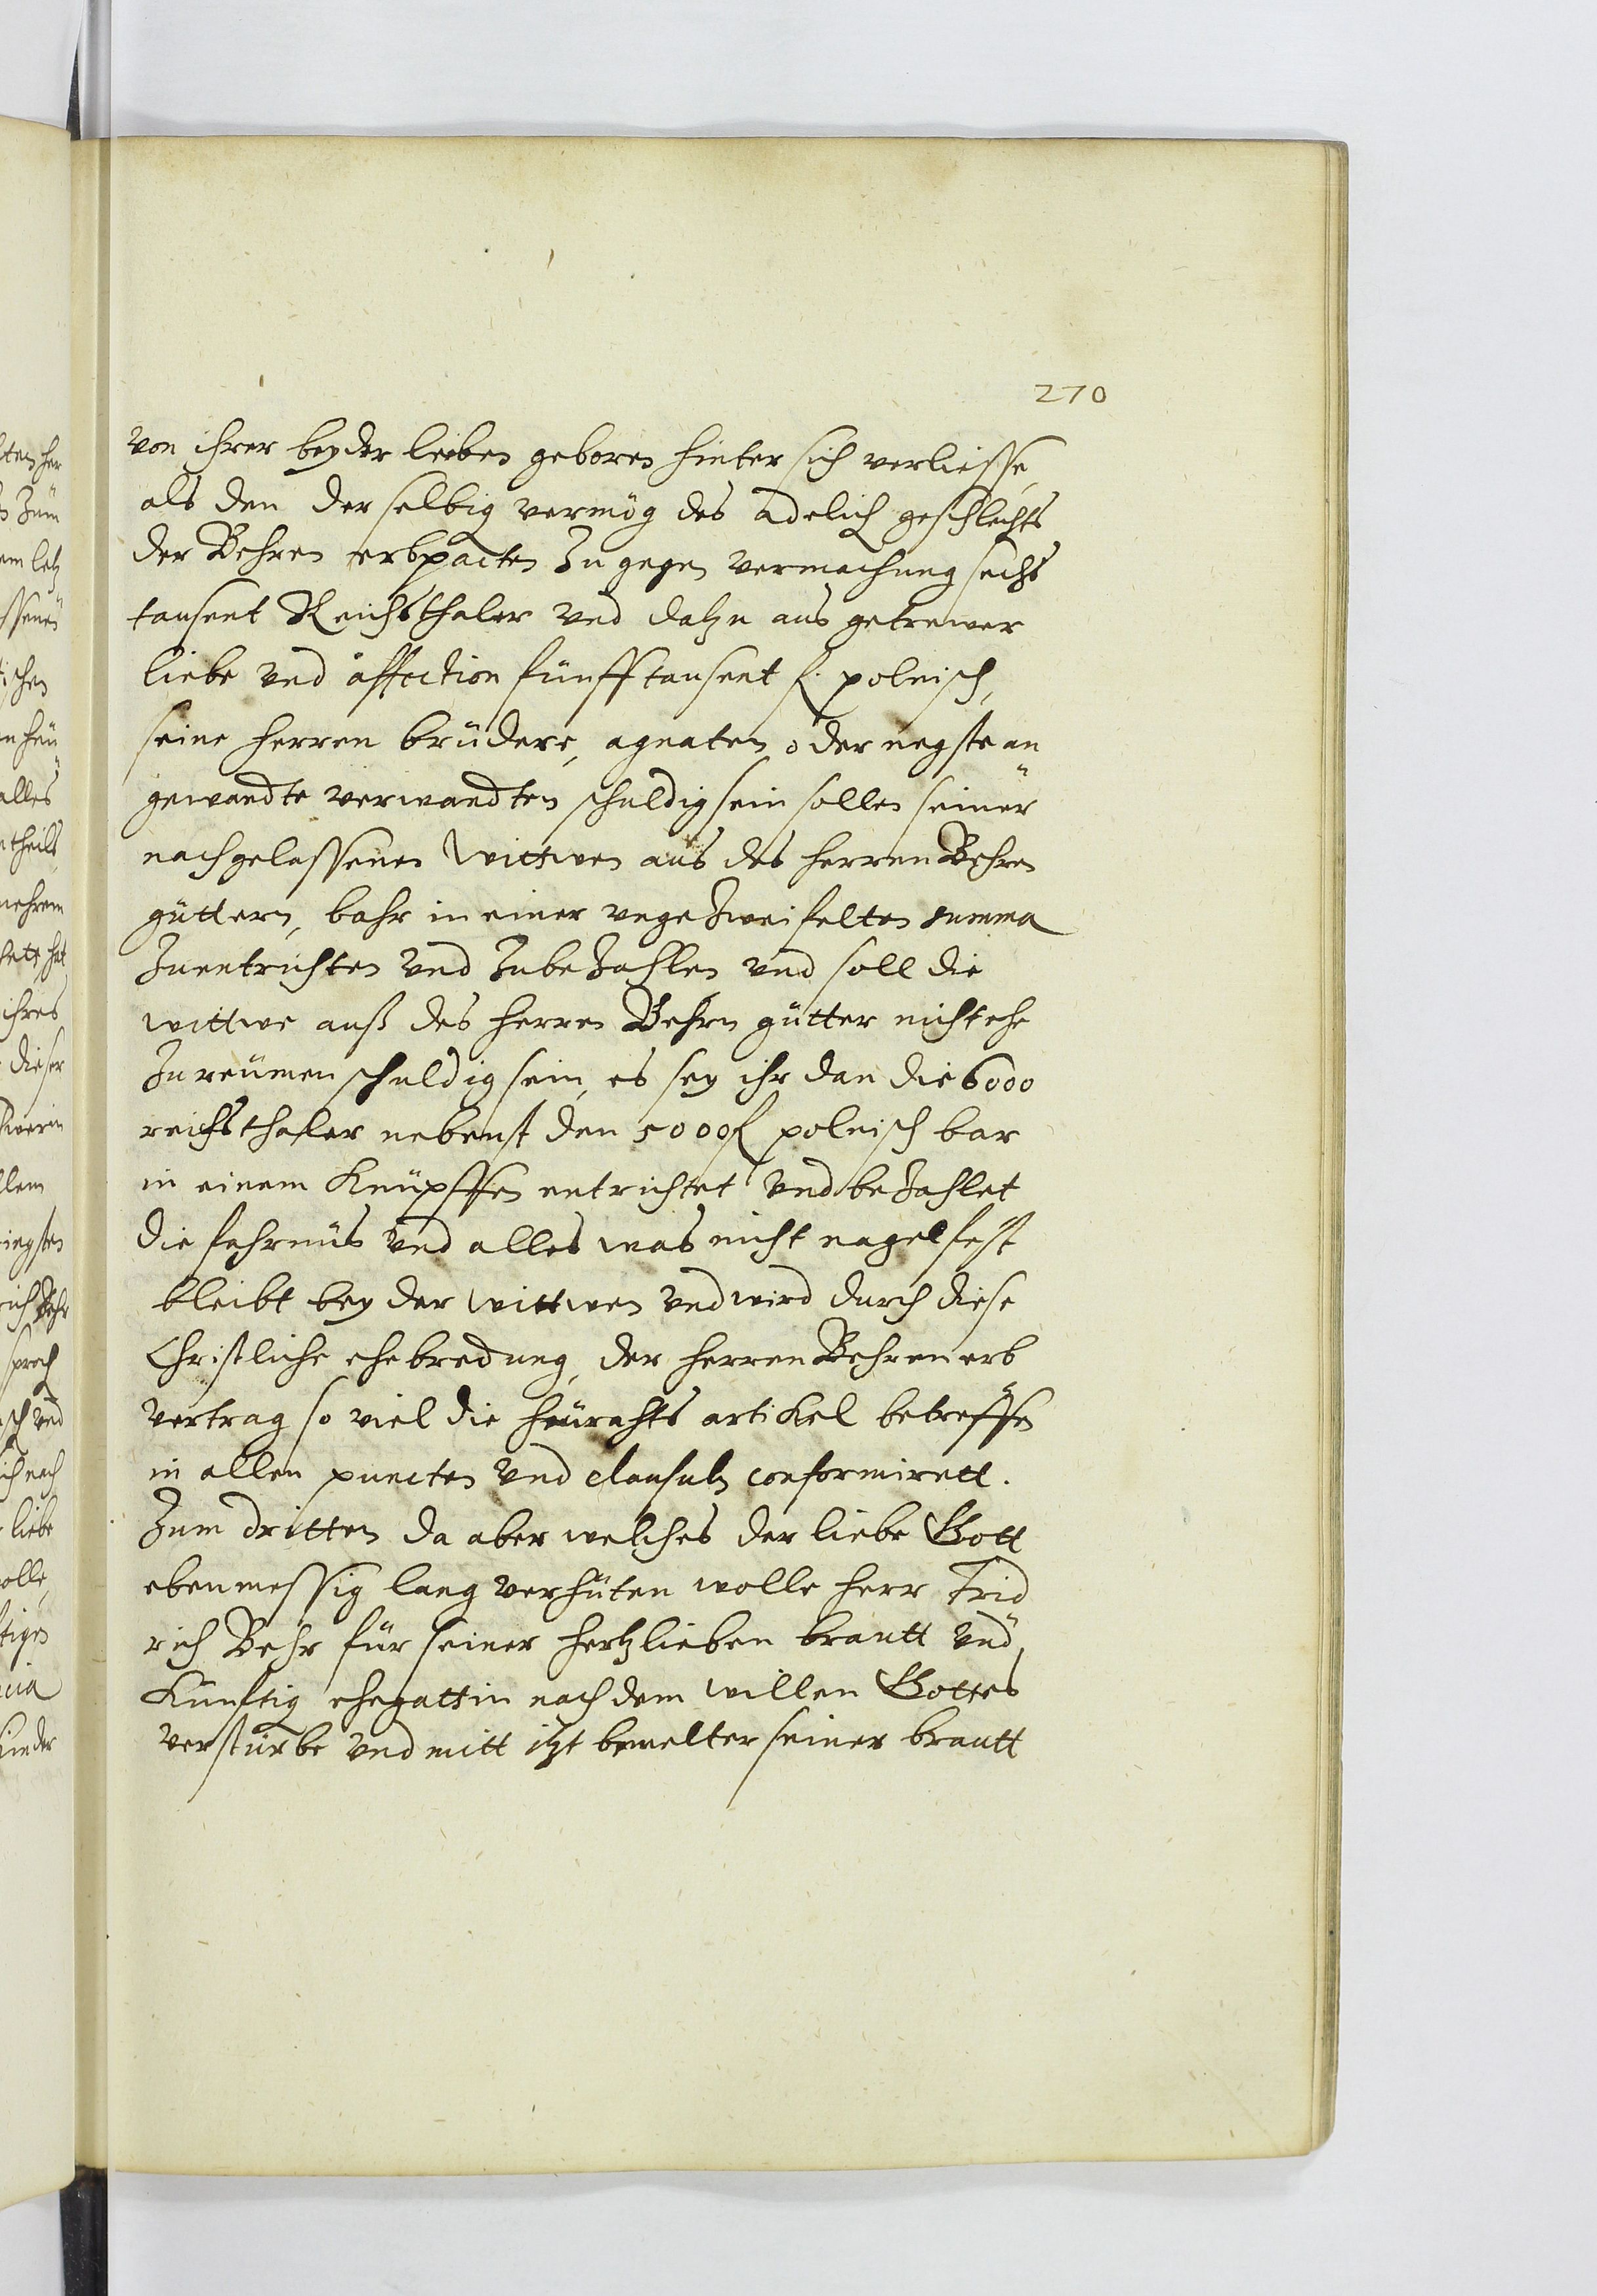 270
von ihrer beyder leiben geboren hinter sich verliesse,
als den derselbig vermög des adelich geschlechts
der Behren erbpacten Zugegen vermachung sechs
tausent Reichsthaler vnd datzu aus getrewer
liebe vnd affection fünfftausent fl. polnisch,
seine herren brüdere, agnaten oder negste an
gewandte verwandten schuldig sein sollen seiner
nachgelassenen Wittwen aus des herren Behren
güttern, bahr in einer vngezweifelten summa
Zuentrichten vnd Zubezahlen vnd soll die
wittwe auß des herren Behrn gütter nicht ehe
Zu reümen schuldig sein, es sey ihr dan die 6000
reichsthaler nebenst den 5000 fl polnisch bar
in einem Knüpffen entrichtet vnd bezahlet
die fahrnüs vnd alles was nicht nagelfest
bleibt bey der wittwen vnd wird durch diese
Christliche ehebredung, der herren Behren erb
vertrag so viel die heürahts artikel betreffen
in allen puncten vnd clausuln conformirett.
Zum dritten da aber welches der liebe Gott
ebenmessig lang verhüten wolle herr Frid
rich Behr für seiner hertzlieben brautt vnd
Künftig ehegattin nach dem willen Gottes
verstürbe vnd mitt itzt bemelter seiner brautt